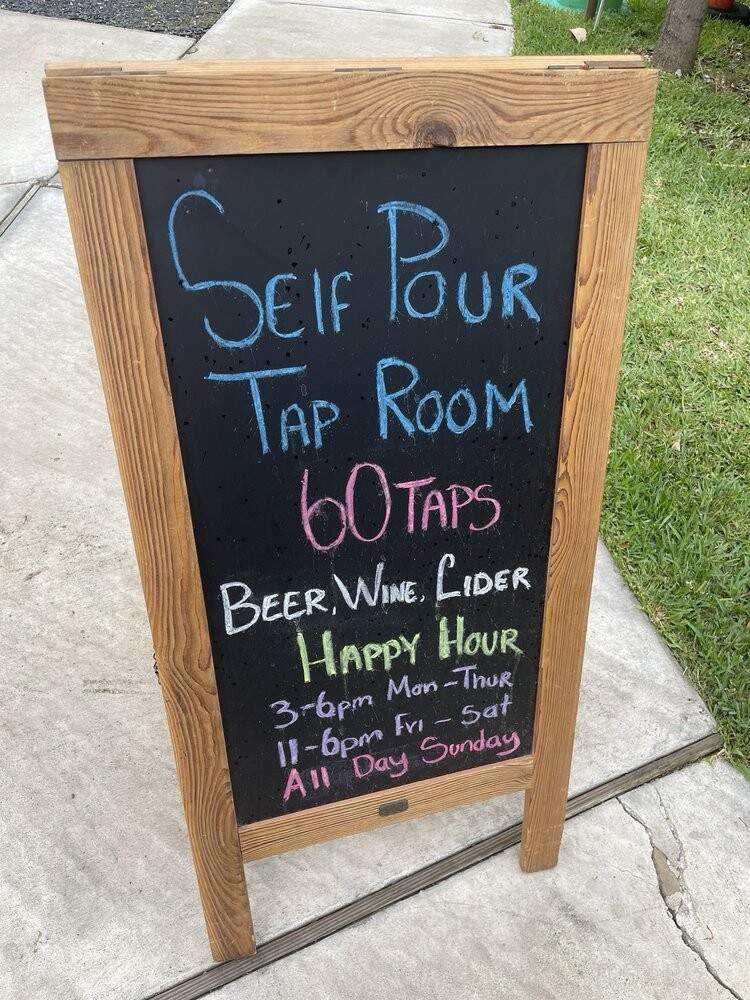 Self Pour
Tap Room
60 TAPS
Beer, Wine, Cider
Happy Hour
3-6pm Mon-Thur
11-6pm Fri - Sat
All Day Sunday